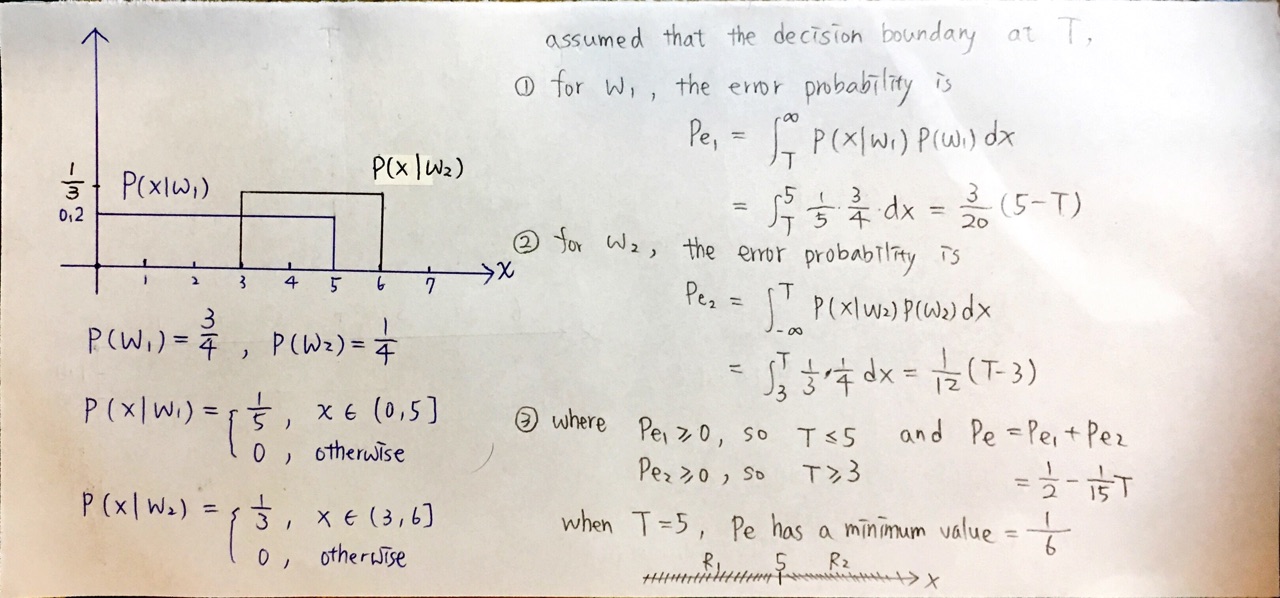 1/3
0,2
P(x|W₁)
P(x|W₂)
1 2 3 4 5 6 7 x
P(W₁) = 3/4 , P(W₂) = 1/4
P(x|W₁) = { 1/5 , x ∈ (0,5]
0 , otherwise
P(x|W₂) = { 1/3 , x ∈ (3,6]
0 , otherwise
assumed that the decision boundary at T,
① for W₁ , the error probability is
Pe₁ = ∫_T^∞ P(x|W₁) P(W₁) dx
= ∫_T^5 1/5 · 3/4 · dx = 3/20 (5-T)
② for W₂ , the error probability is
Pe₂ = ∫_{-∞}^T P(x|W₂) P(W₂) dx
= ∫_3^T 1/3 · 1/4 dx = 1/12 (T-3)
③ where Pe₁ ⩾ 0, so T ⩽ 5 and Pe = Pe₁ + Pe₂
Pe₂ ⩾ 0 , so T ⩾ 3 = 1/2 - 1/15 T
when T = 5 , Pe has a minimum value = 1/6
R₁ 5 R₂ x